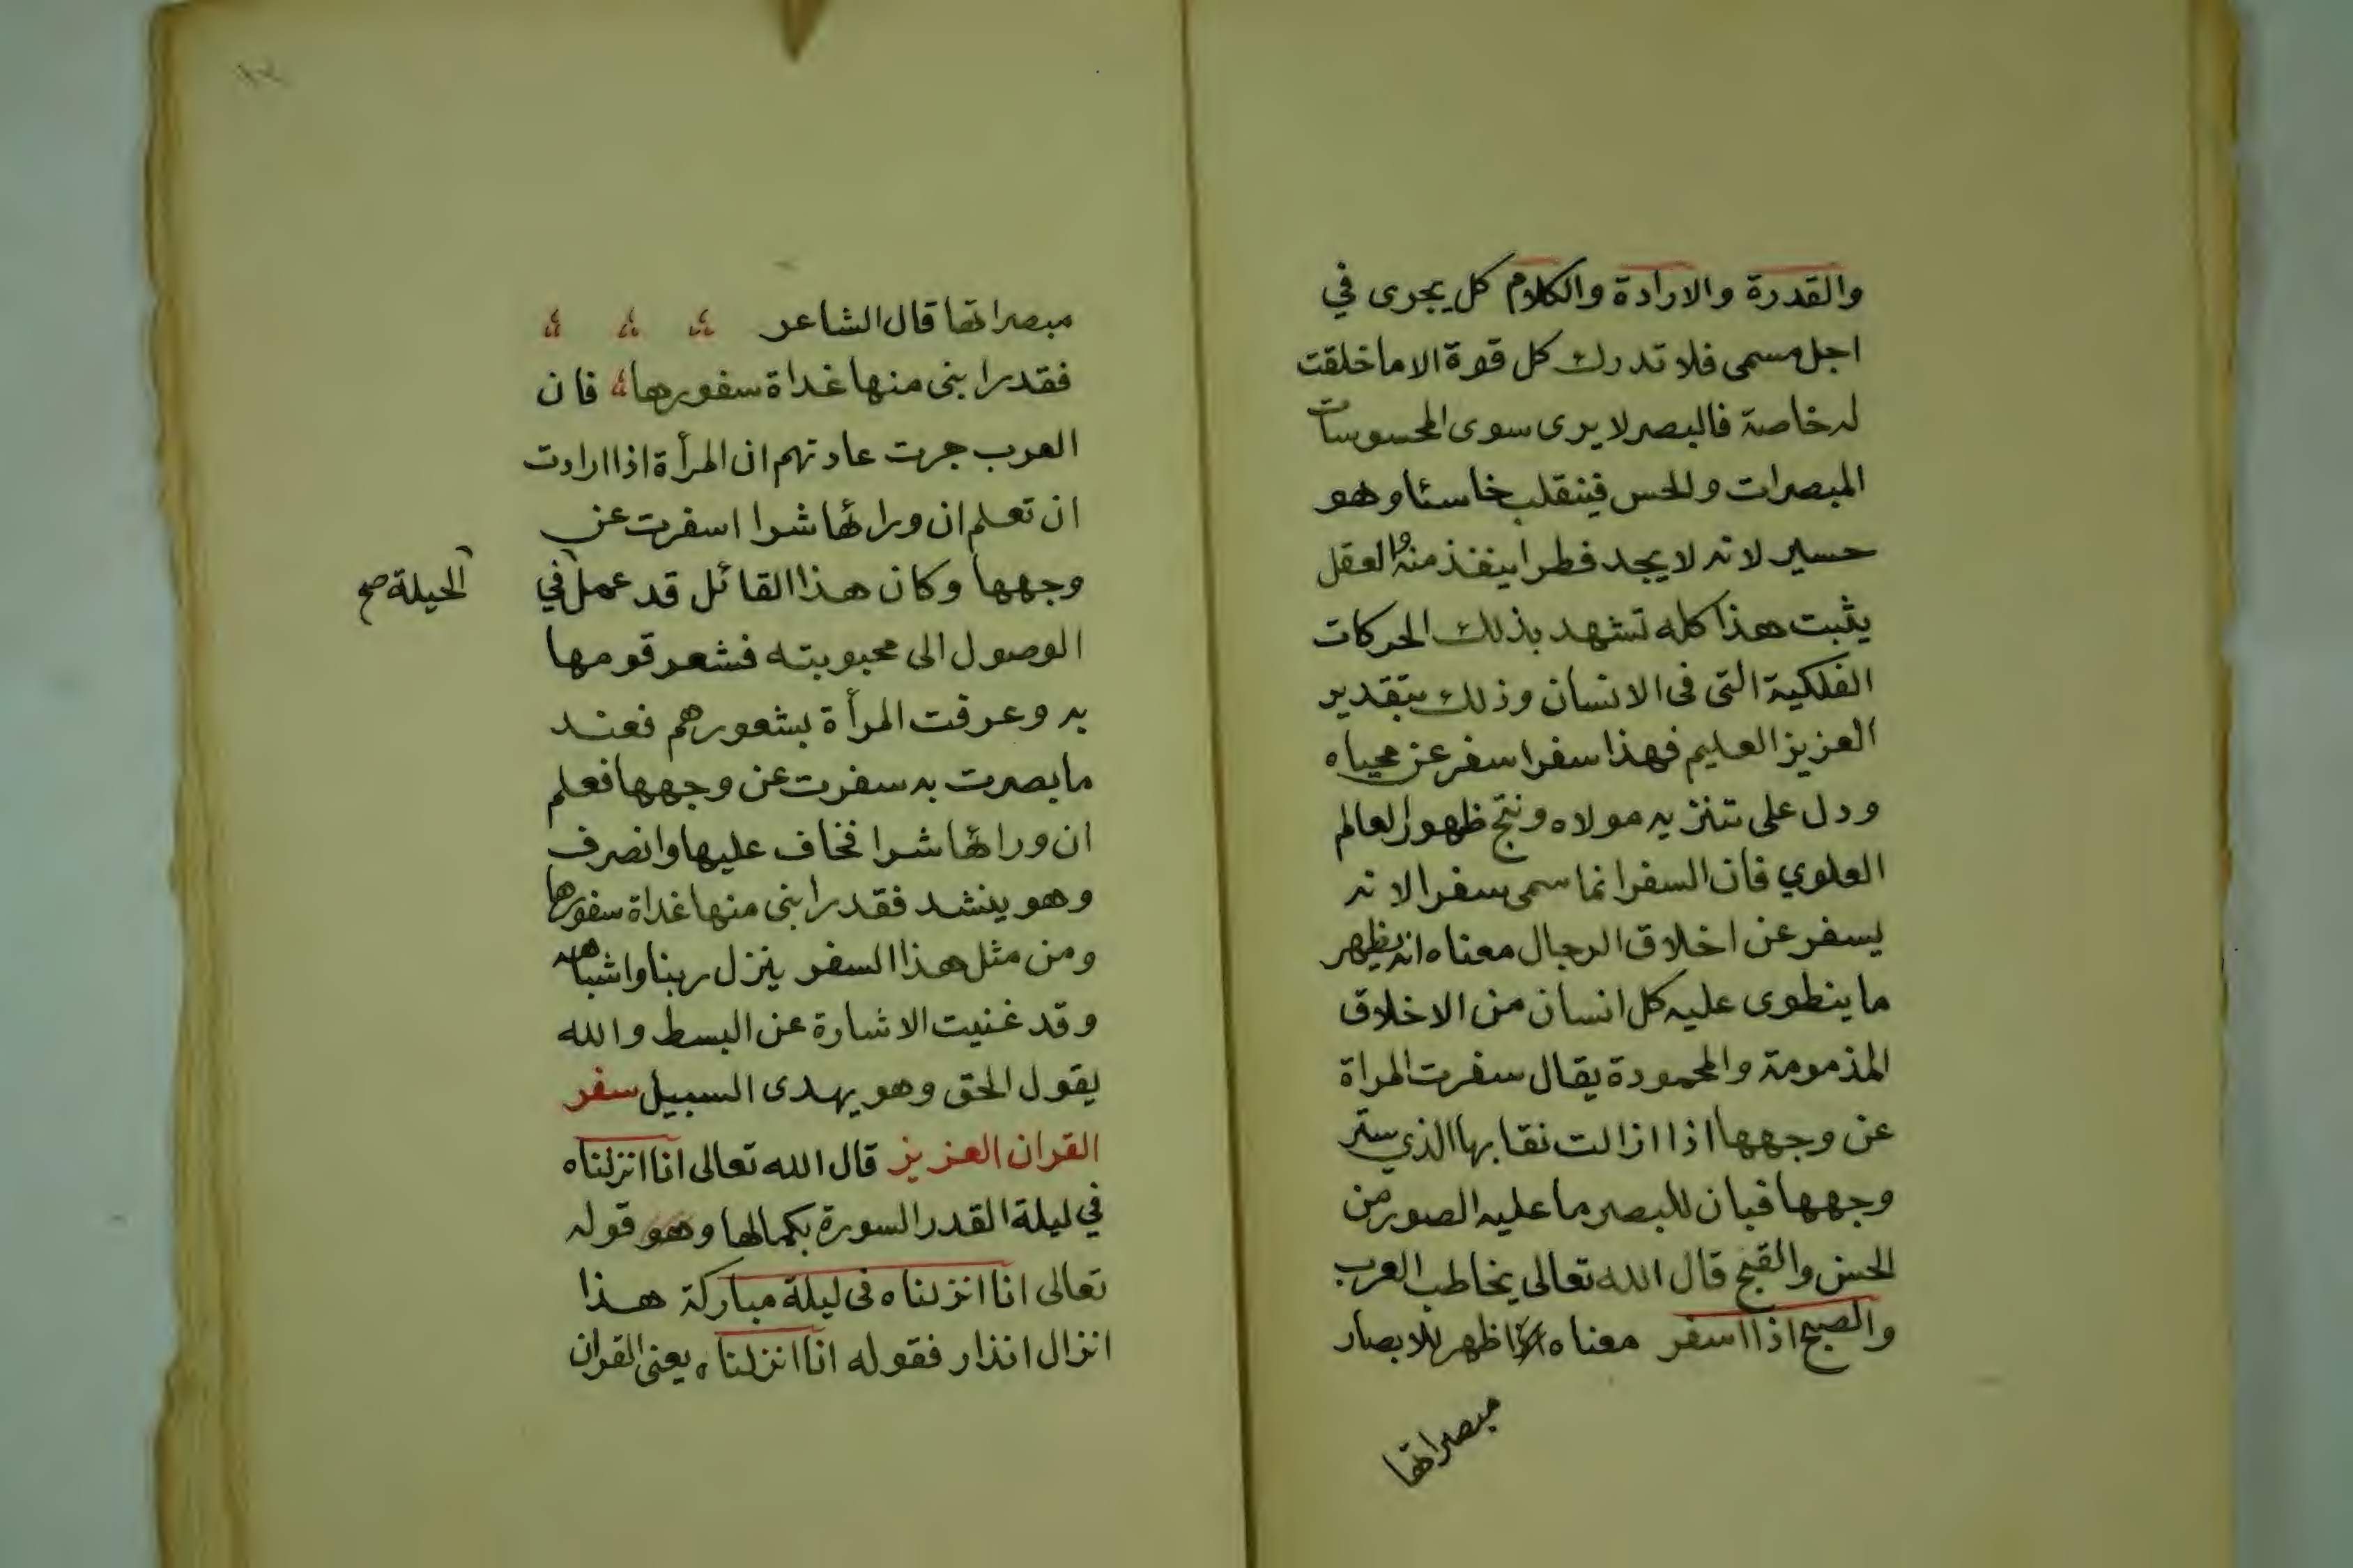 والقدرة والارادة والكلام كل يجرى في
اجل مسمى فلا تدرك كل قوة الا ما خلقت
له خاصة فالبصر لا يرى سوى المحسوسات
المبصرات والحس فينقلب خاسئا وهو
حسير لانه لا يجد فطرا ينفذ منه والعقل
يثبت هذا كله تشهد بذلك الحركات
الفلكية التى فى الانسان وذلك بتقدير
العزيز العليم فهذا سفر اسفر عن محياه
ودل على تنزيه مولاه ونتج ظهور العالم
العلوي فان السفر انما سمى سفرا لانه
يسفر عن اخلاق الرجال معناه انه يظهر
ما ينطوى عليه كل انسان من الاخلاق
المذمومة والمحمودة يقال سفرت المراة
عن وجهها اذا ازالت نقابها الذي ستر
وجهها فبان للبصر ما عليه الصور من
الحسن والقبح قال الله تعالى يخاطب العرب
والصبح اذا اسفر معناه اظهر للابصار
مبصراتها
مبصراتها قال الشاعر
فقد رابنى منها غداة سفورها فان
العرب جرت عادتهم ان المرأة اذا ارادت
ان تعلم ان ورائها شرا اسفرت عن
وجهها وكان هذا القائل قد عمل في
الحيلة صح
الوصول الى محبوبته فشعر قومها
به وعرفت المرأة بشعورهم فعند
ما بصرت به سفرت عن وجهها فعلم
ان ورائها شرا فخاف عليها وانصرف
وهو ينشد فقد رابنى منها غداة سفورها
ومن مثل هذا السفر ينزل ربنا واشباهه
وقد غنيت الاشارة عن البسط والله
يقول الحق وهو يهدى السبيل سفر
القران العزيز قال الله تعالى انا انزلناه
في ليلة القدر السورة بكمالها وهو قوله
تعالى انا انزلناه فى ليلة مباركة هذا
انزال انذار فقوله انا انزلناه يعنى القران